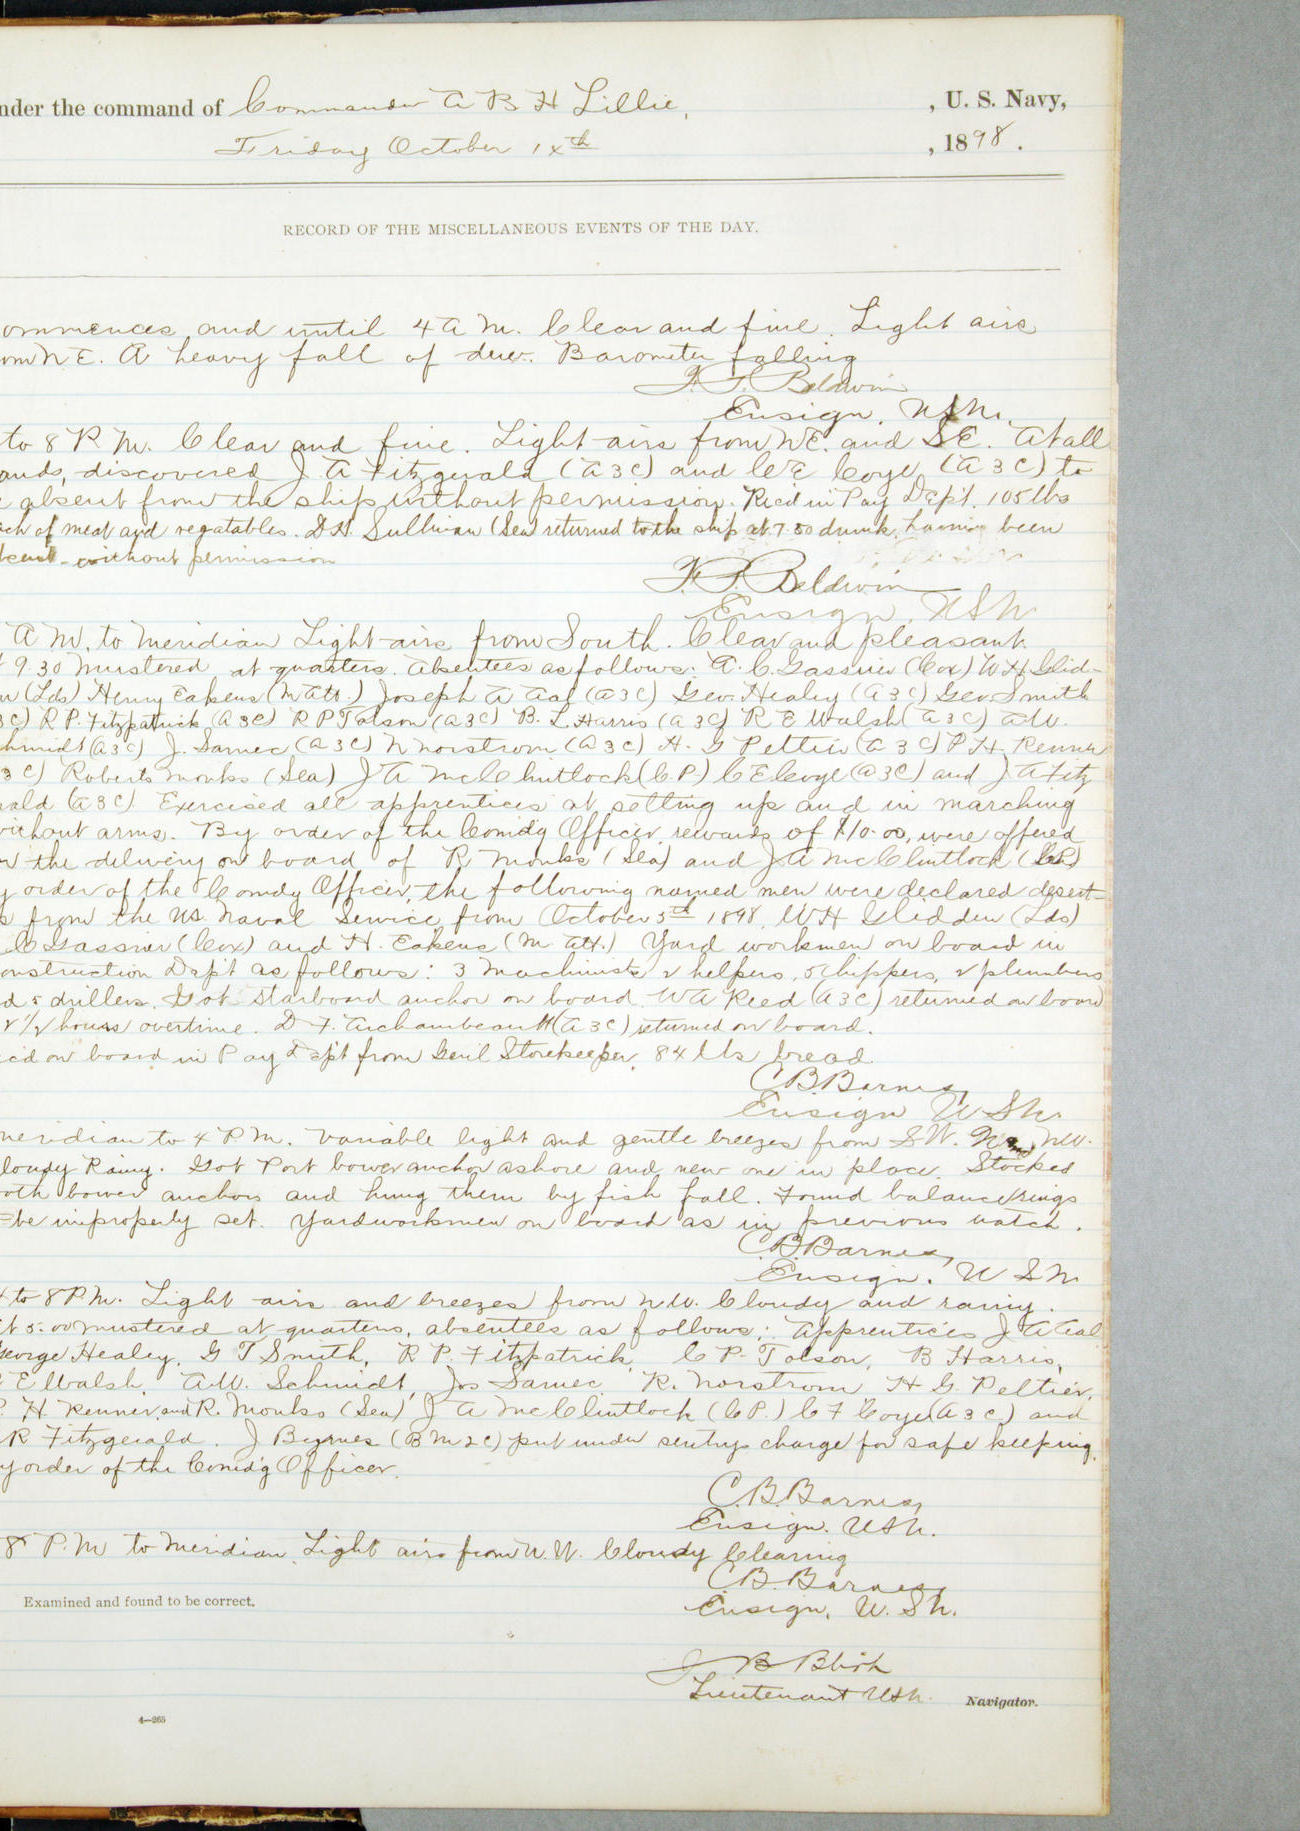 nder the command of Commander A B H Lillie, , U. S. Navy,
Friday October 14th , 1898.
RECORD OF THE MISCELLANEOUS EVENTS OF THE DAY.
ommences and until 4 A M. Clear and fine. Light airs
om N E. A heavy fall of dew. Barometer falling
F. T. Baldwin
Ensign, U S N.
to 8 P. M. Clear and fine. Light airs from N E. and S E. At all
ands, discovered J. A Fitzgerald (A 3 C) and C E Coye (A 3 C) to
e absent from the ship without permission. Rec'd in Pay Dep't. 105 lbs
ach of meat and vegatables. D H. Sullivan (Sea) returned to the ship at 7.50 drunk, having been
bsent without permission
F. T. Baldwin
Ensign, U S N
A M. to Meridian Light airs from South. Clear and pleasant.
t 9.30 mustered at quarters. Absentees as follows: A. C. Gassner (Cox) W H Glid-
en (Lds) Henry Eakens (M Att.) Joseph A Aal (A 3 C) Geo. Healey (A 3 C) Geo Smith
3 C) R P. Fitzpatrick (A 3 C) R P Tolson (A 3 C) B. L Harris (A 3 C) R E Walsh (A 3 C) A W.
chmidt (A 3 C) J. Samec (A 3 C) N Norstrom (A 3 C) H. G Peltier (A 3 C) P H. Renner
3 C) Roberts Monks (Sea) J A McClintlock (C. P.) C E Coye (A 3 C) and J A Fitz
rald (A 3 C) Exercised all apprentices at setting up and in marching
without arms. By order of the Comd'g Officer, rewards of $10.00, were offered
or the delivery on board of R Monks (Sea) and J A McClintlock (C P.)
y order of the Comdg Officer, the following named men were declared desert-
s from the US. Naval Service from October 5th 1898. W H Glidden (Lds)
C Gassner (Cox) and H. Eakens (M. Att.) Yard workmen on board in
onstruction Dep't as follows: 3 Machinists 2 helpers, 5 Chippers, 2 plumbers
d 5 drillers. Got starboard anchor on board. W A Reed (A 3 C) returned on board
2 1/2 hours overtime. D. F. Archambeault (A 3 C) returned on board.
ec'd on board in Pay Dep't from Gen'l Storekeeper, 84 lbs bread.
C B Barnes,
Ensign U S N.
meridian to 4 P M. Variable light and gentle breezes from S W. and N W.
loudy Rainy. Got Port bower anchor ashore and new one in place. Stocked
oth bower anchors and hung them by fish fall. Found balance rings
be improperly set. Yard workmen on board as in previous watch.
C. B. Barnes,
Ensign, U S N
4 to 8 P. M. Light airs and breezes from N W. Cloudy and rainy.
t 5:00 mustered at quarters, absentees as follows: Apprentices J A Aal
George Healey, G T Smith, R P. Fitzpatrick, C P. Tolson, B Harris,
E Walsh, A. W. Schmidt, Jos Samec, R. Norstrom H G. Peltier,
P. H. Renner, and R. Monks (Sea) J A McClintlock (C P.) C F Coye (A 3 C) and
R Fitzgerald. J Byrnes (B M 2 C) put under sentry's charge for safe keeping,
y order of the Comd'g Officer.
C. B. Barnes,
Ensign. U S N.
8 P. M to Meridian. Light airs from N. W. Cloudy Clearing
C. B. Barnes,
Ensign, U. S N.
Examined and found to be correct.
J B Blish
Lieutenant U S N. Navigator.
4—265